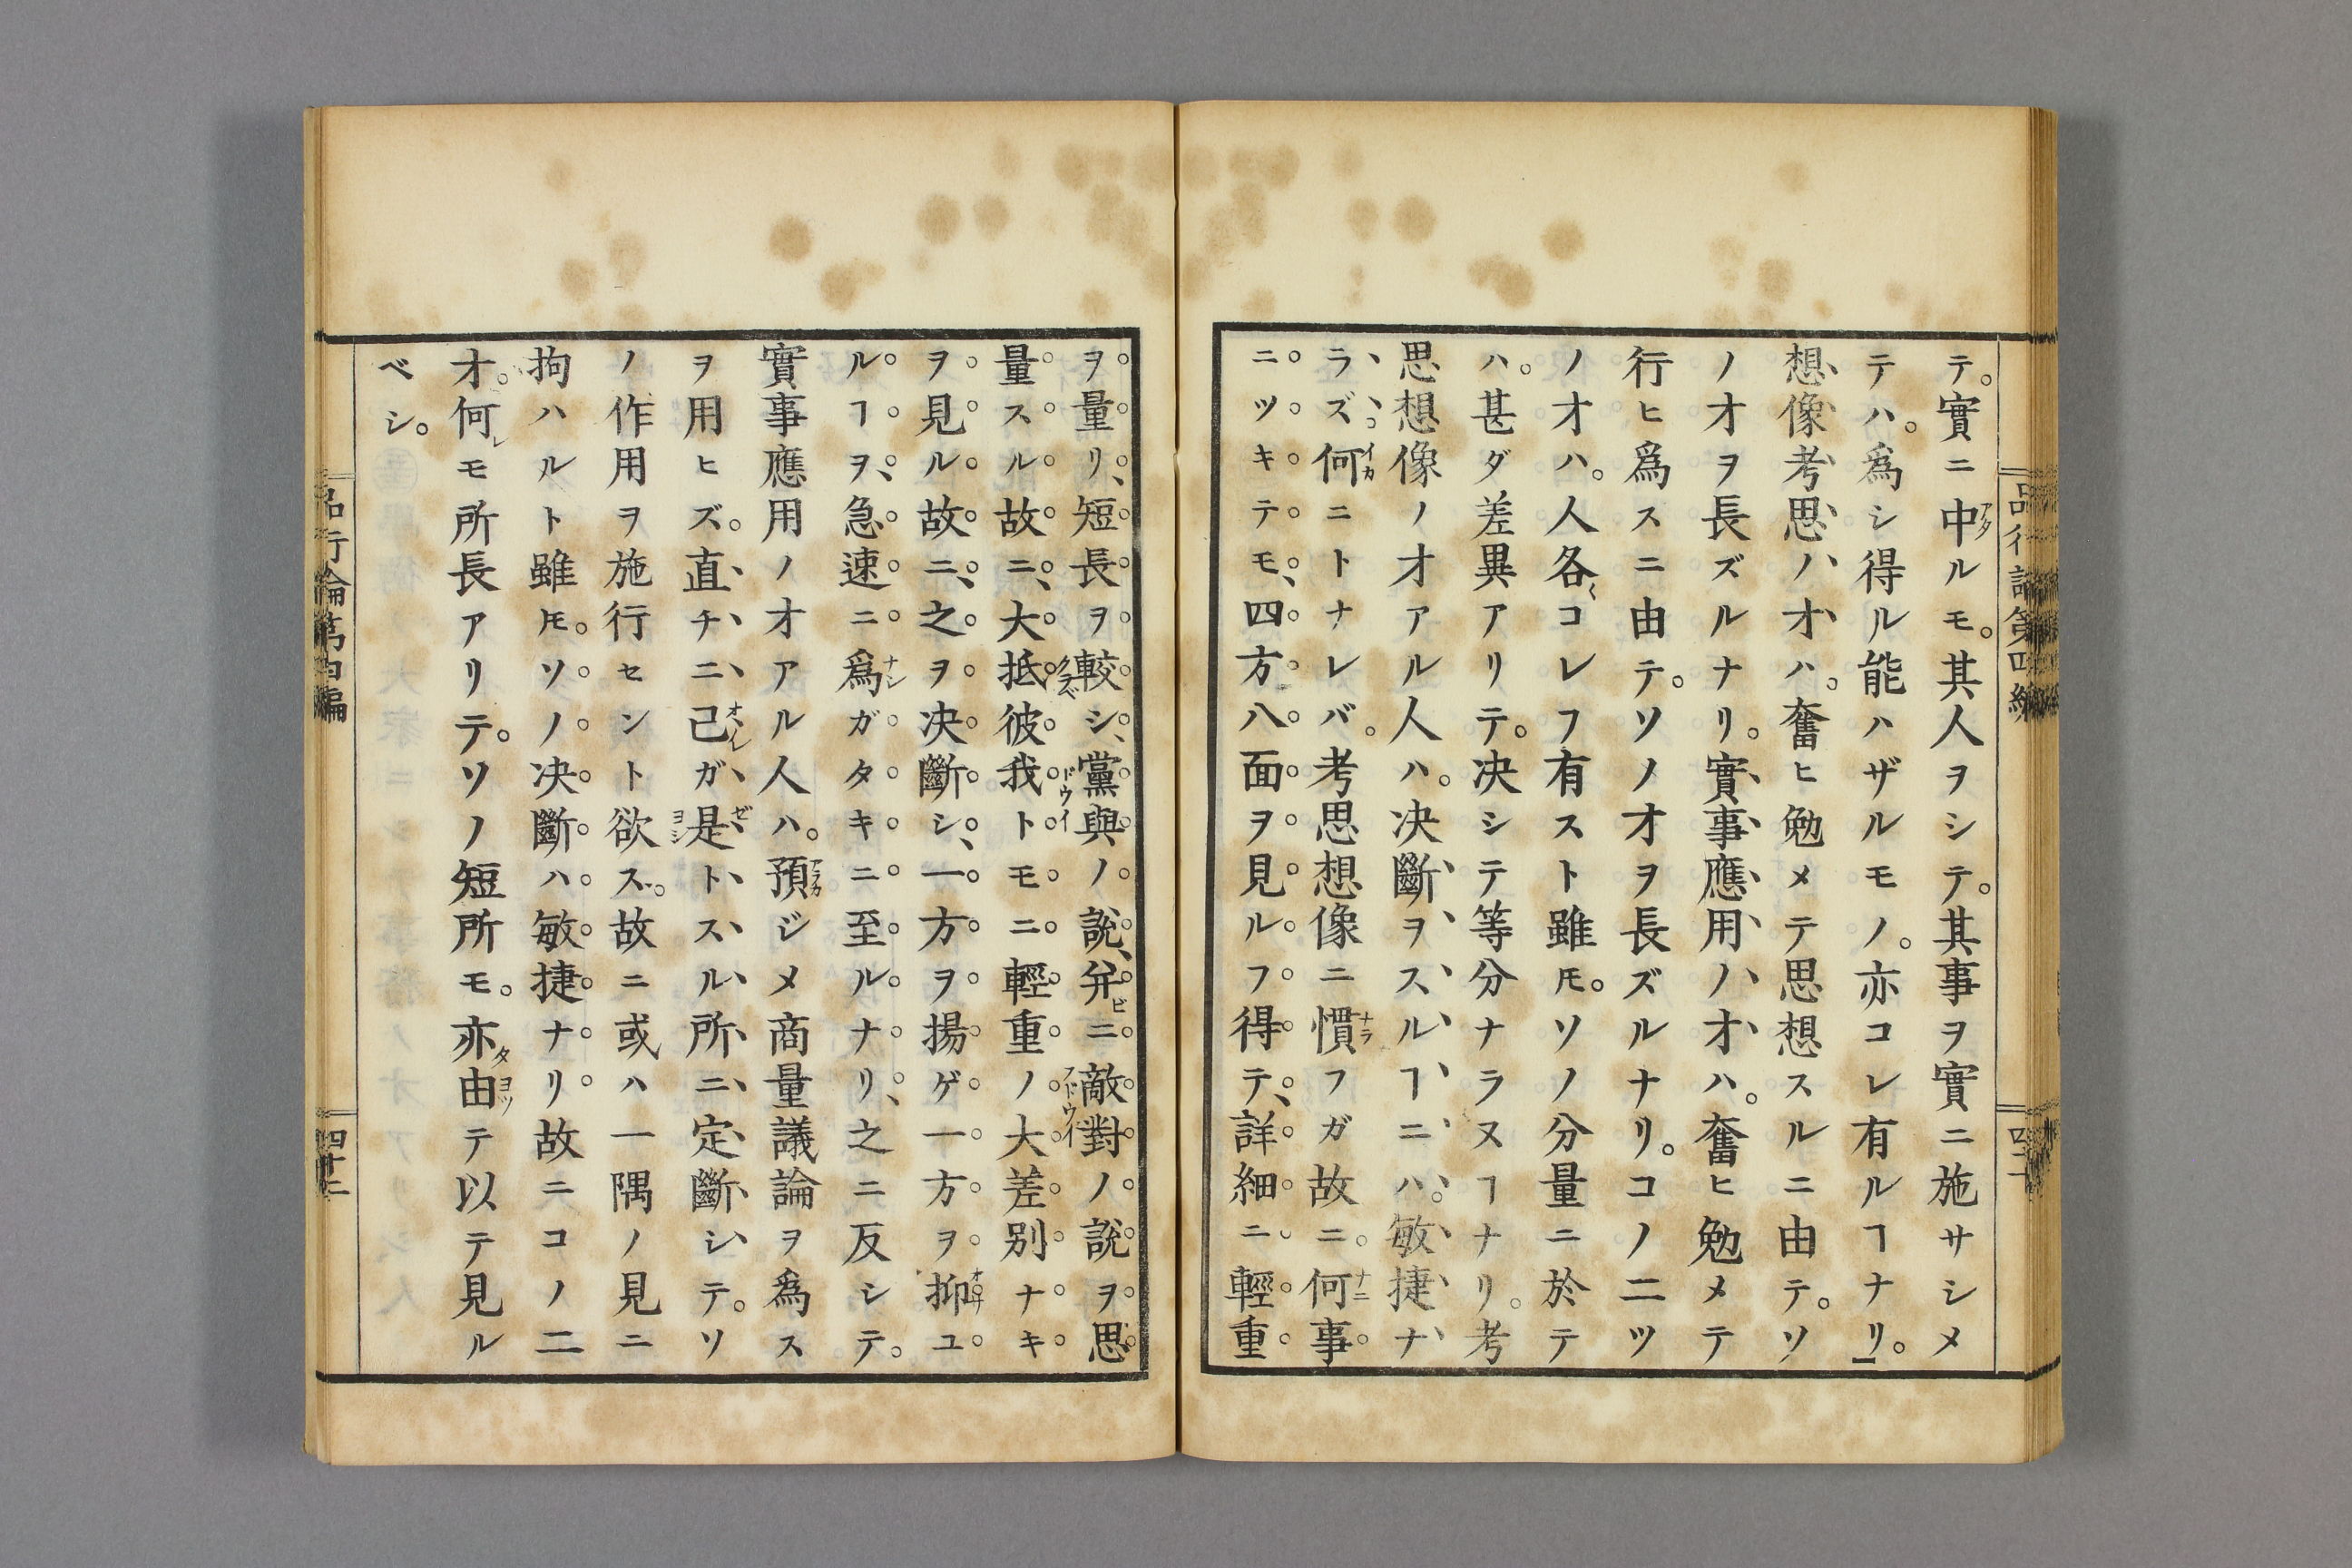 品行論第四編
テ。實ニ中ルモ。其人ヲシテ。其事ヲ實ニ施サシメ
テハ。爲シ得ル能ハザルモノ。亦コレ有ルヿナリ。
想像考思ノ才ハ。奮ヒ勉メテ思想スルニ由テ。ソ
ノ才ヲ長ズルナリ。實事應用ノ才ハ。奮ヒ勉メテ
行ヒ爲スニ由テ。ソノ才ヲ長ズルナリ。コノ二ツ
ノ才ハ。人各〻コレフ有スト雖𪜈。ソノ分量ニ於テ
ハ。甚ダ差異アリテ。决シテ等分ナラヌヿナリ。考
思想像ノ才アル人ハ。决斷ヲスルヿニハ。敏捷ナ
ラズ、何ニトナレバ。考思想像ニ慣フガ故ニ。何事
ニツキテモ、四方八面ヲ見ルフ得テ、詳細ニ輕重
ヲ量リ、短長ヲ較シ、黨與ノ說、幷ニ敵對ノ說ヲ思
量スル故ニ、大抵彼我トモニ輕重ノ大差別ナキ
ヲ見ル故ニ、之ヲ决斷シ、一方ヲ揚ゲ一方ヲ抑ユ
ルヿヲ、急速ニ爲ガタキニ至ルナリ、之ニ反シテ。
實事應用ノ才アル人ハ。預ジメ商量議論ヲ爲ス
ヲ用ヒズ。直チニ己ガ是トスル所ニ定斷シテ。ソ
ノ作用ヲ施行セント欲ス。故ニ或ハ一隅ノ見ニ
拘ハルト雖𪜈。ソノ决斷ハ敏捷ナリ故ニコノ二
才。何モ所長アリテ。ソノ短所モ。亦由テ以テ見ル
ベシ。
品行論第四編
四十二